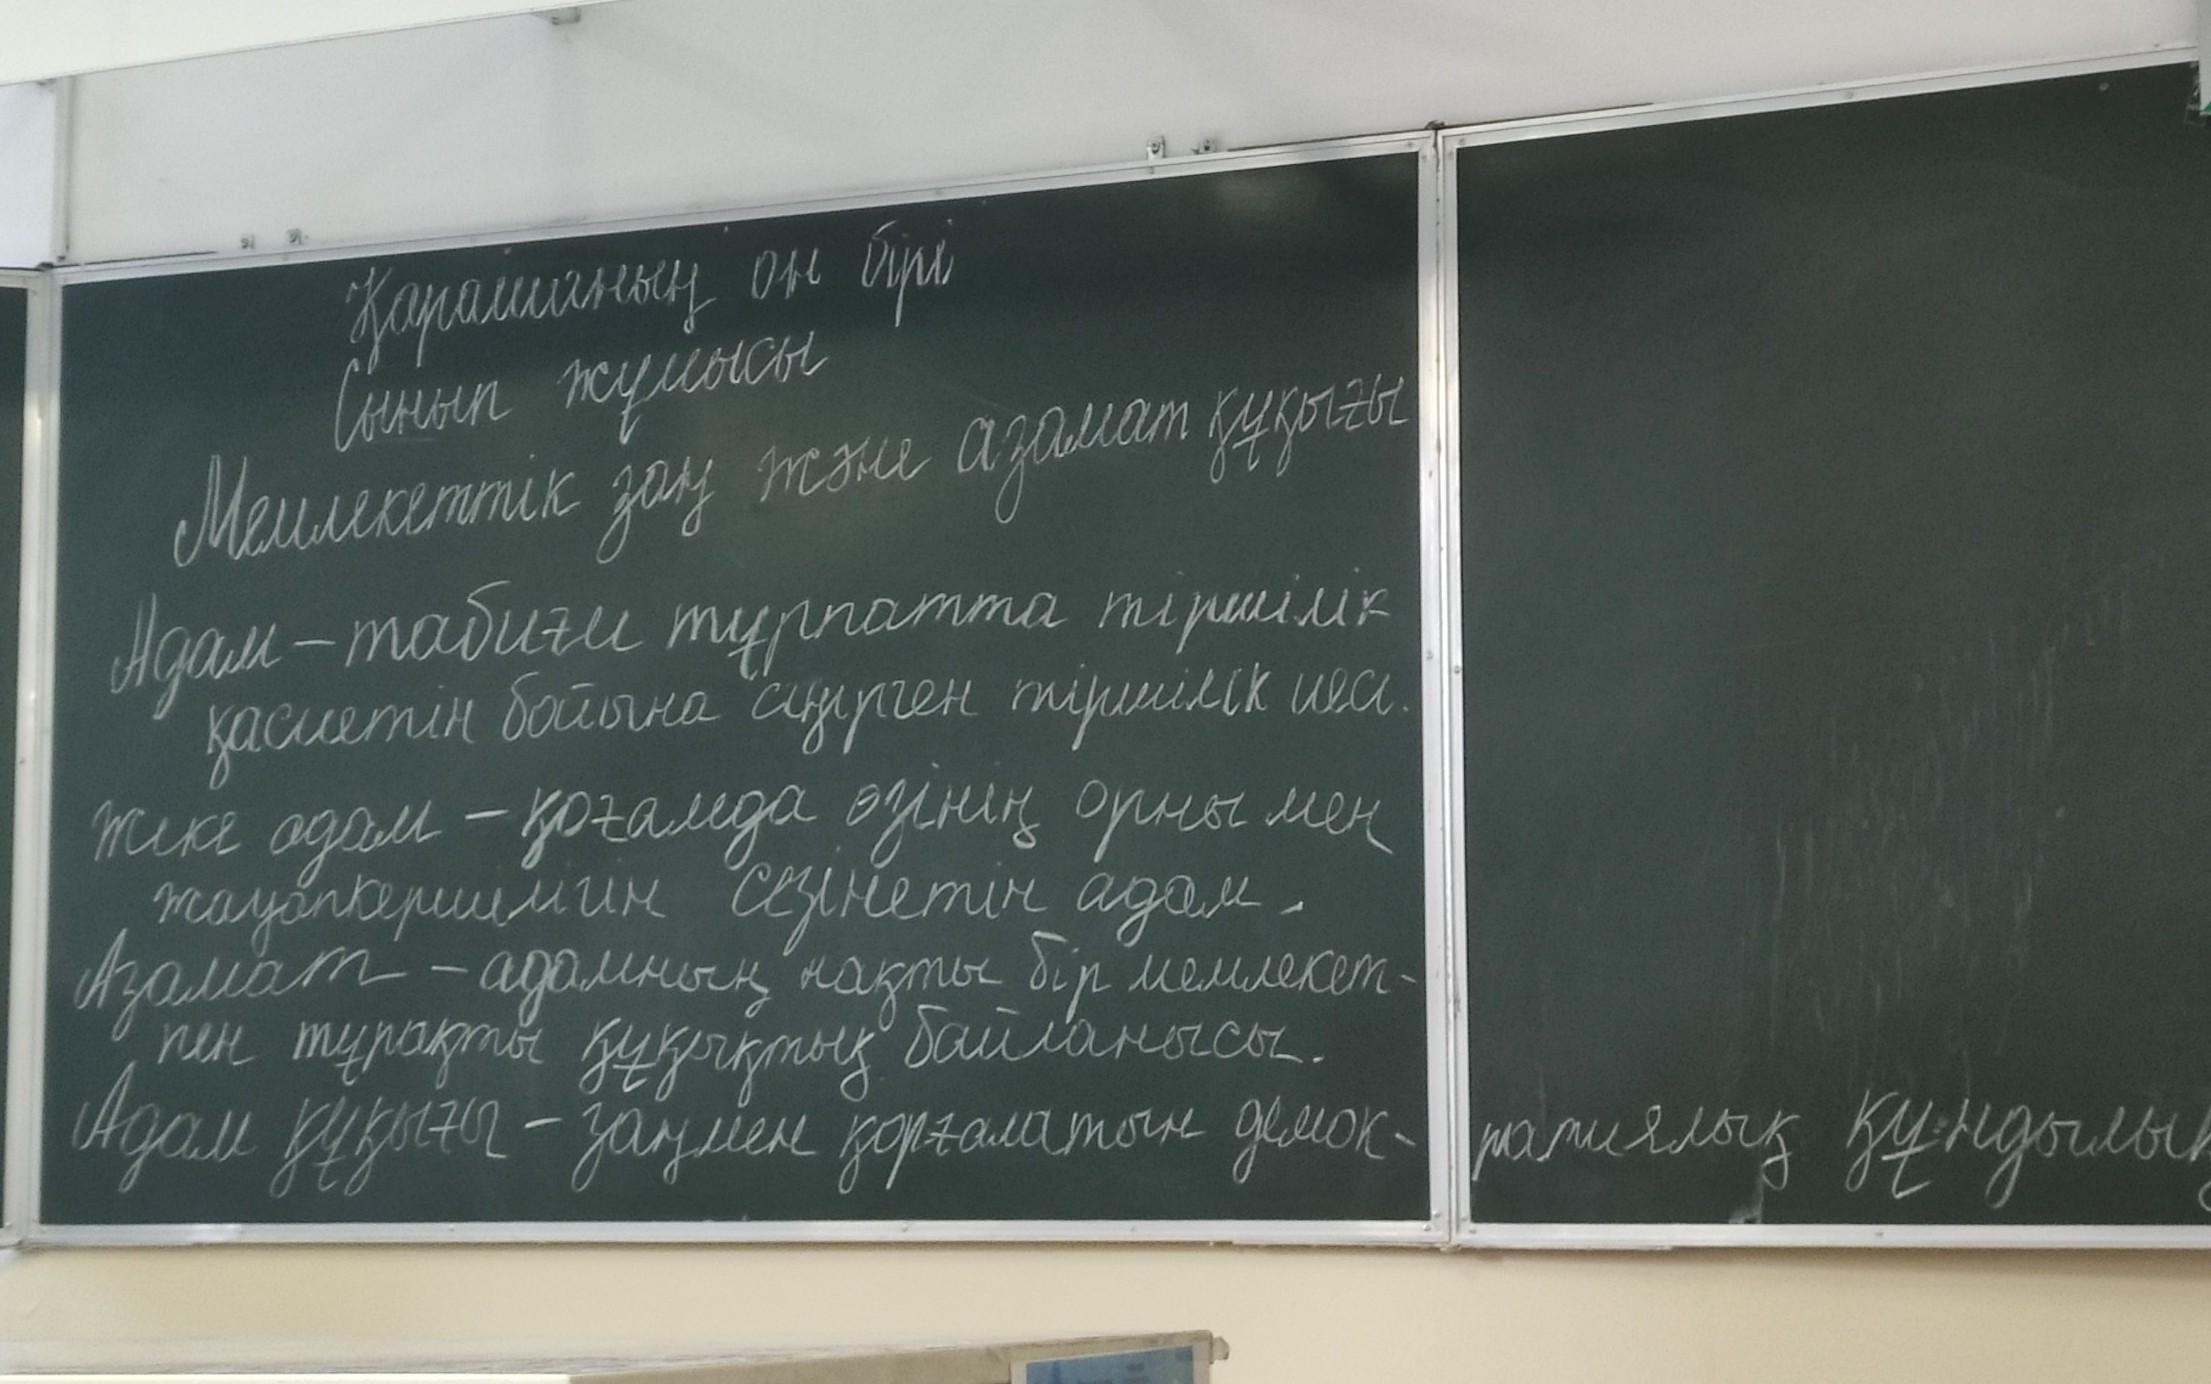 Қарашаның он бірі
Сынып жұмысы
Мемлекеттік заң және азамат құқығы
Адам – табиғи тұрпатта тіршілік
қасиетін бойына сіңірген тіршілік иесі.
Жеке адам – қоғамда өзінің орны мен
жауапкершілігін сезінетін адам.
Азамат – адамның нақты бір мемлекет-
пен тұрақты құқықтық байланысы.
Адам құқығы – заңмен қорғалатын демок-
ратиялық құндылық